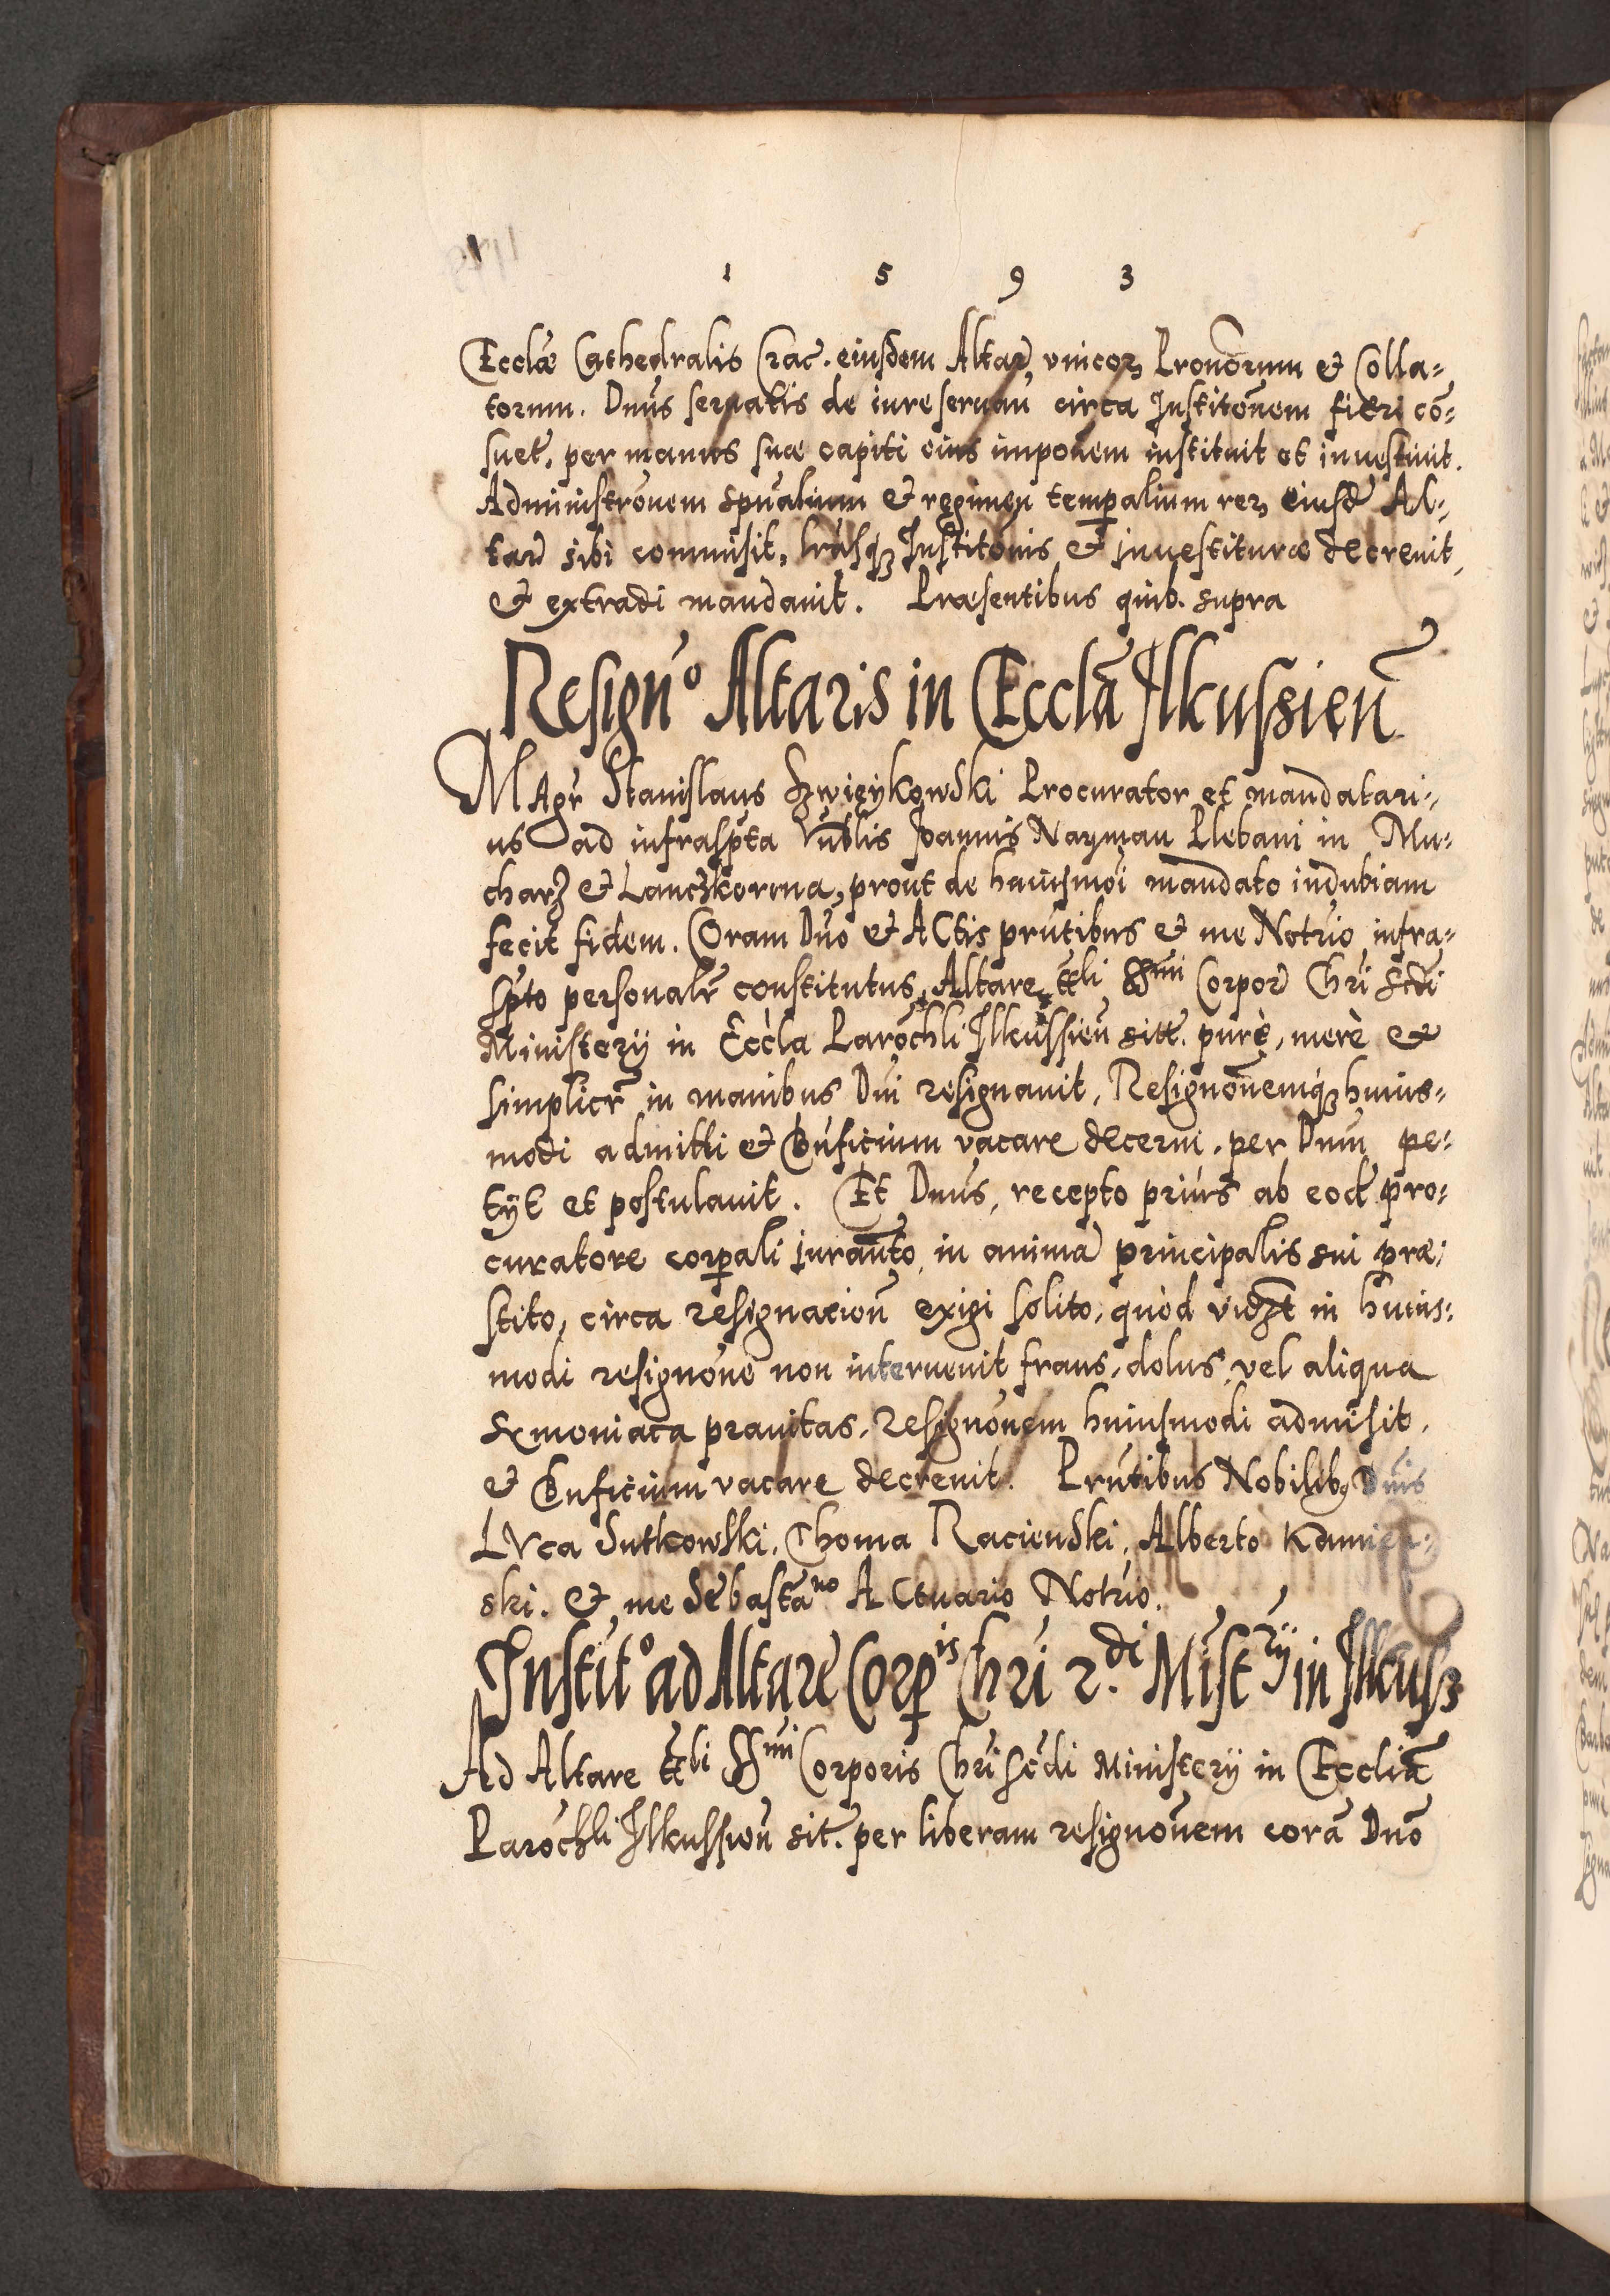 1 5 9 3
Ecclæ Cathedralis Crac. eiusdem Altar̃, vnicorz Pronõrum & Colla-
torum. Dnus seruatis de iure seruañ circa Institõnem fieri cõ-
suet. per manus suæ capiti eius impõnem instituit et inuestiuit.
Administrõnem spũalium & regimen temp̱alium rerz eiusd̃ Al-
tar̃ sibi commisit, lrãsqz Institõnis & inuestituræ decreuit,
& extradi mandauit. Præsentibus quib. supra
Resignõ Altaris in Ecclã Ilkussień
MAgr̃ Stanislaus Zwieykowski Procurator et mandatari-
us ad infraspta Vñblis Joannis Nayman Plebani in Mu-
charz & Lanczkorma, prout de huiusmoi mandato indubiam
fecit fidem. COram Dño & ACtis prñtibus & me Notrio infra-
spto personalr̃ constitutus, Altare ttli SSmi Corpor̃ Chri Scdi
Ministerij in Eccla Parochli Ilkussień sitt. purè, merè &
simplicr̃ in manibus Dni resignauit, Resignõnemqz huius-
modi admitti & Bñficium vacare decerni. per Dnm pe-
tijt et postulauit. Et Dnus, recepto prius ab eod̃ pro-
curatore corp̱ali iurañto, in anima principalis sui præ-
stito, circa resignacioñ exigi solito, quòd vidzt in huius-
modi resignõne non interuenit fraus, dolus vel aliqua
symoniaca prauitas, resignõnem huiusmodi admisit,
& Bñficium vacare decreuit. Prñtibus Nobilibz Dnis
LVca Sutkowski, Thoma Racienski, Alberto Kamien-
ski. & me Sebastãno ACtuario Notrio.
Institõ ad Altare Corpis Chri 2.di Mistrij in Ilkusz
Ad Altare ttli SSmi Corporis Chri Scdi Ministerij in Ecclia
Parochli Ilkussień sit. per liberam resignõnem corã Dnõ